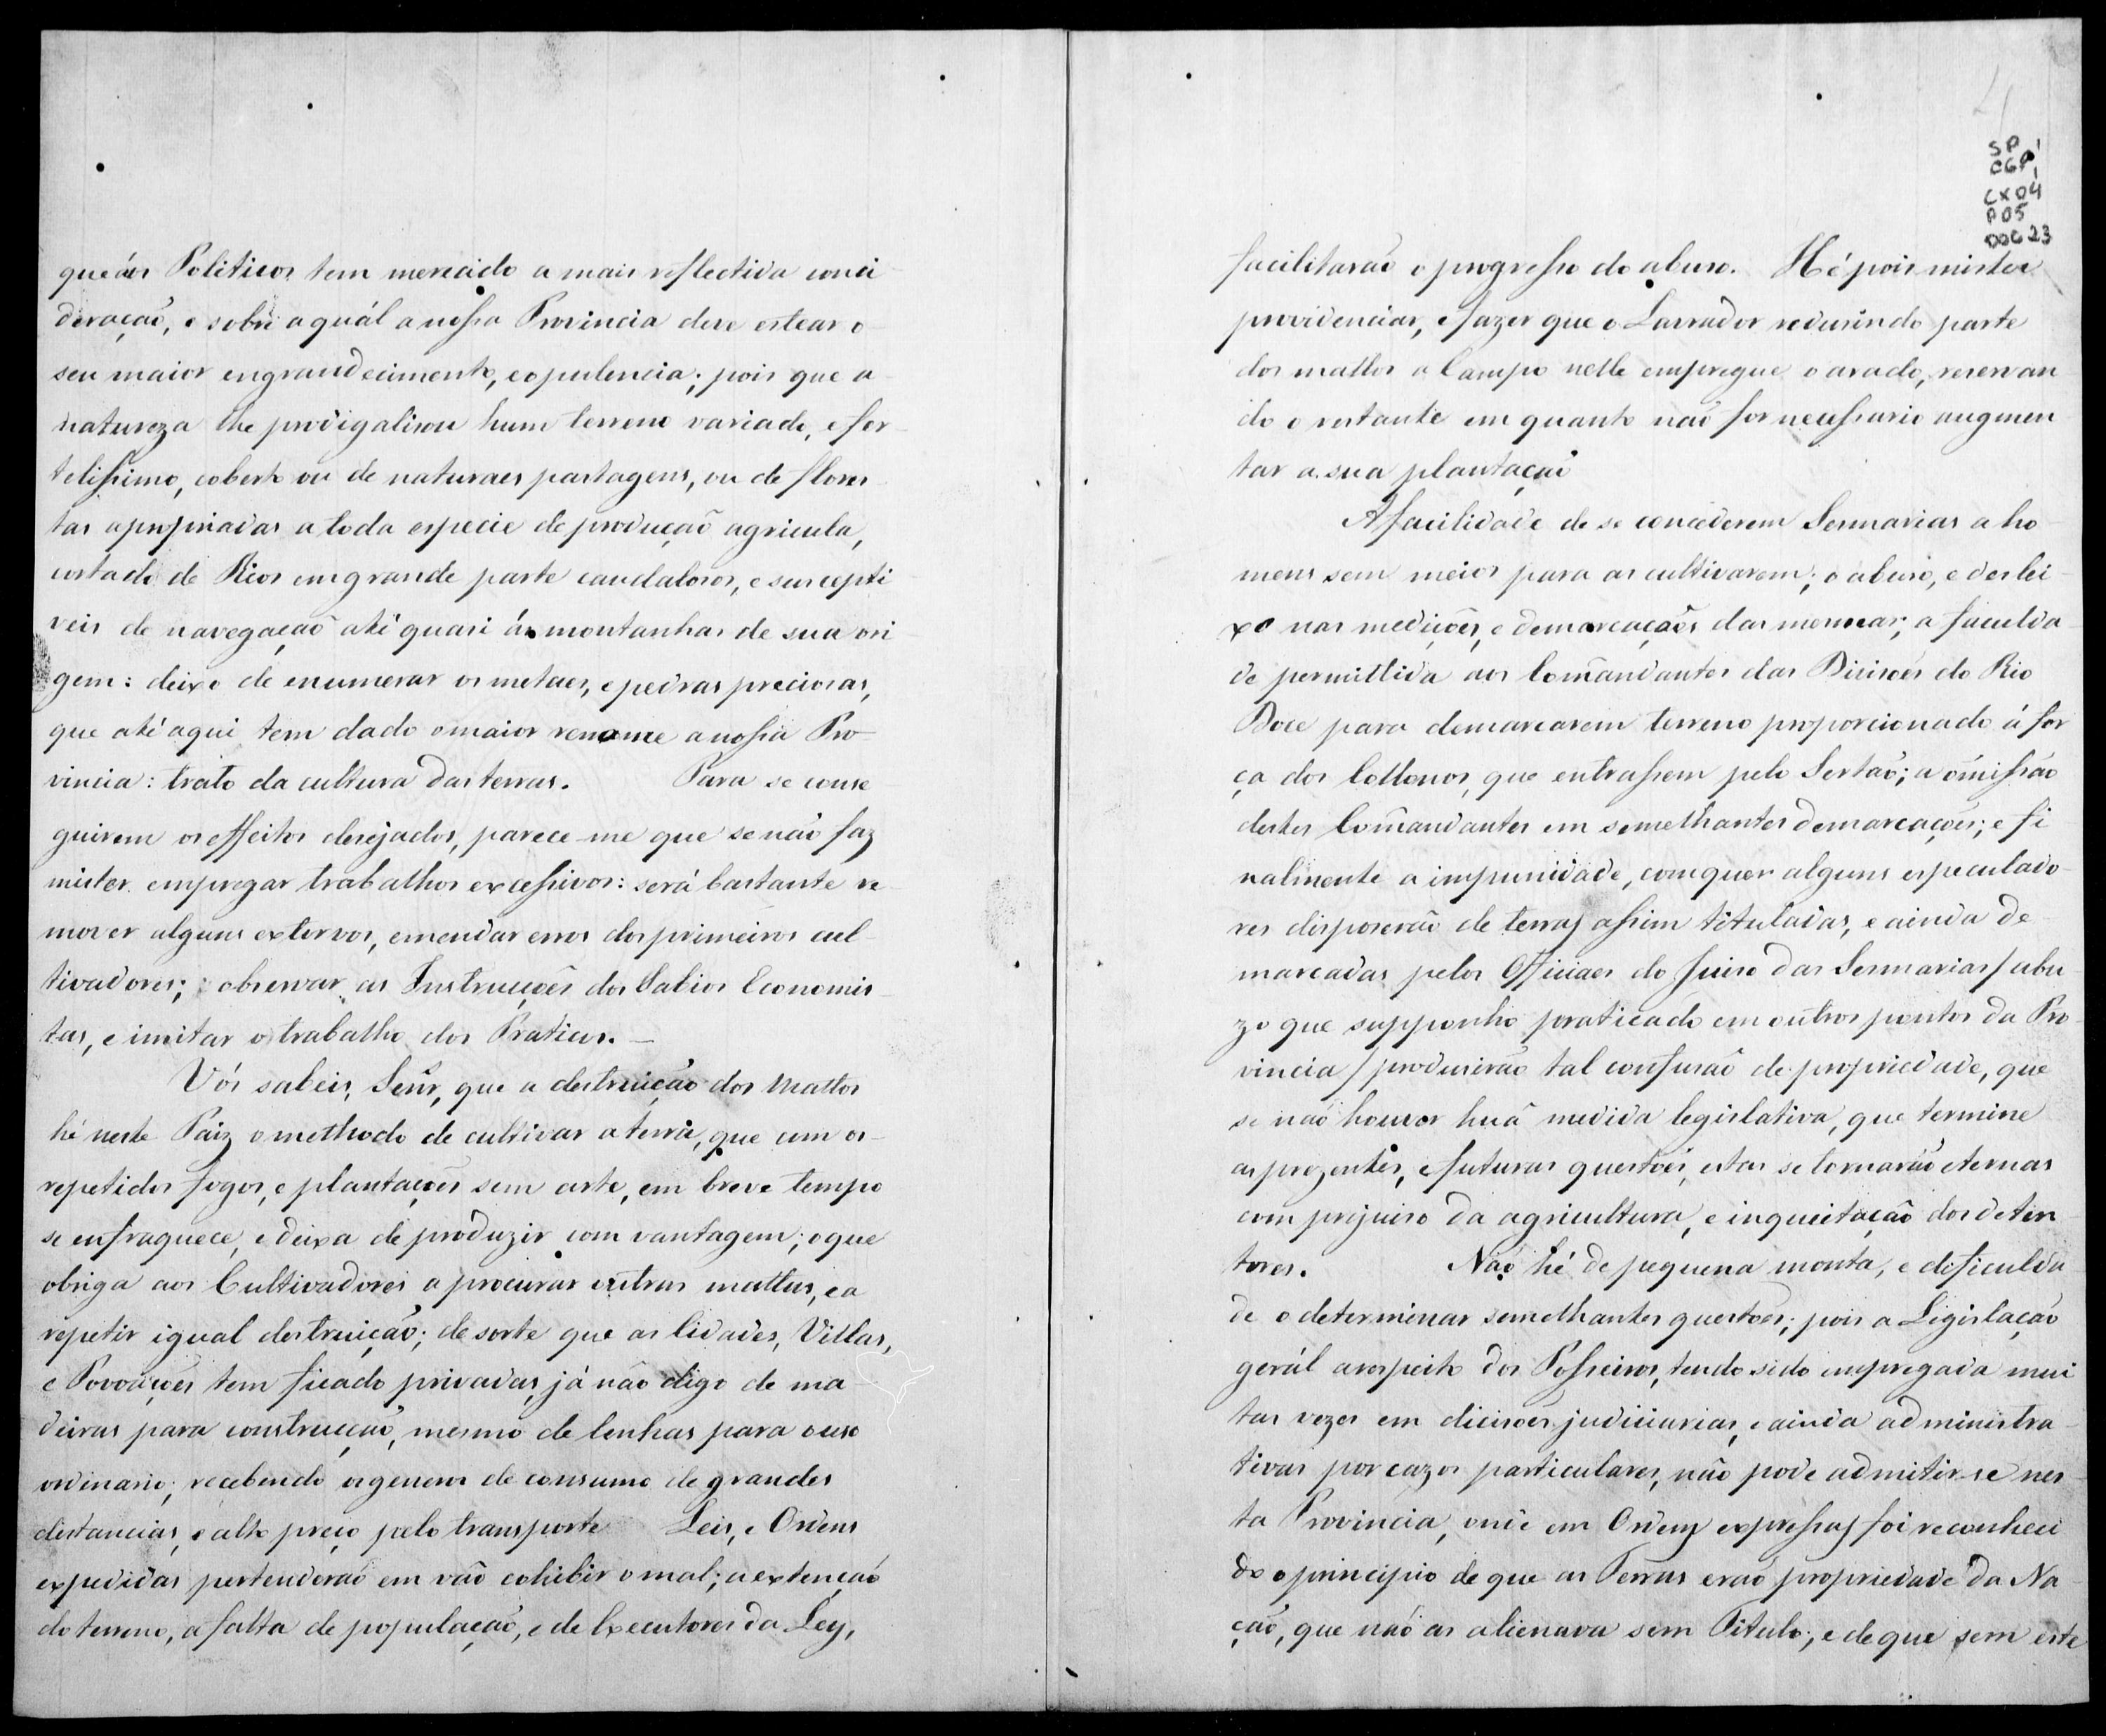 que aos Politicos tem merecido a mais reflectida consi
deração, e sobre a quál a nossa Provincia deve estear o
seu maior engrandecimento, e opulencia; pois que a
natureza lhe prodigalisou hum terreno variado, e fer
telissimo, coberto ou de naturaes pastagens, ou de flores
tas apropriadas a toda especie de producção agricula,
cortado de Rios em grande parte caudalosos, e suscepti
veis de navegação até quasi ás montanhas de sua ori
gem: deixo de enumerar os metaes, e pedras preciosas,
que até aqui tem dado o maior renome a nossa Pro-
vincia: trato da cultura das terras. Para se conse
guirem os effeitos desejados, parece-me que se não faz
mister empregar trabalhos excessivos: será bastante re
mover alguns extorvos, emendar erros dos primeiros cul-
tivadores; observar as Instrucções dos Sabios Economis
tas, e imitar o trabalho dos Praticos. —
Vós sabeis, Senr, que a destruição dos Mattos
hé neste Paiz o methodo de cultivar a terra, que com os-
repetidos fogos, e plantações sem arte, em breve tempo
se enfraquece, e deixa de produzir com vantagem; o que
obriga aos Cultivadores a procurar outros mattos, e a
repetir igual destruição; de sorte que as Cidades, Villas,
e Povoações tem ficado privadas, já não digo de ma
deiras para construcção, mesmo de lenhas para o uso
ordinario; recebendo os generos de consumo de grandes
distancias, e alto preço pelo transporte Leis, e Ordens
expedidas pertenderão em vão cohibir o mal; a extenção
do terreno, a falta de população, e de Executores da Ley,
4
SP
CGP,
CX04
P05
DOC 23
facilitarão o progresso do abuso. Hé pois mister
providenciar, e fazer que o Lavrador redusindo parte
dos mattos a Campo nelle empregue o arado, reservan
do o restante em quanto não for necessario augmen
tar a sua plantação
A facilidade de se concederem Sesmarias a ho
mens sem meios para as cultivarem; o abuso, e deslei
xo nas medições, e demarcações das mesmas; a faculda
de permittida aos Comandantes das Divisoes do Rio
Doce para demarcarem terreno proporcionado á for
ça dos Collonos, que entrassem pelo Sertão; a omissão
destes Comandantes em semelhantes demarcações; e fi
nalmente a impunidade, com que alguns especulado-
res disposerão de terras assim tituladas, e ainda de
marcadas pelos Officiaes do Juiso das Sesmarias / abu
zo que supponho praticado em outros pontos da Pro
vincia / produsirão tal confusão de propriedade, que
se não houver huã medida legislativa, que termine
as prezentes, e futuras questões, estas se tornarão eternas
com prejuiso da agricultura, e inquietação dos deten
tores. Não hé de pequena monta, e dificulda
de o determinar semelhantes questões; pois a Legislação
gerál a respeito dos Posseiros, tendo sido empregada mui
tas vezes em dicisões judiciarias, e ainda administra
tivas por cazos particulares, não pode admitir-se nes
ta Provincia, onde em Ordens expressas foi reconheci
do o principio de que as Terras erão propriedade da Na
ção, que não as alienava sem Titulo; e de que sem este